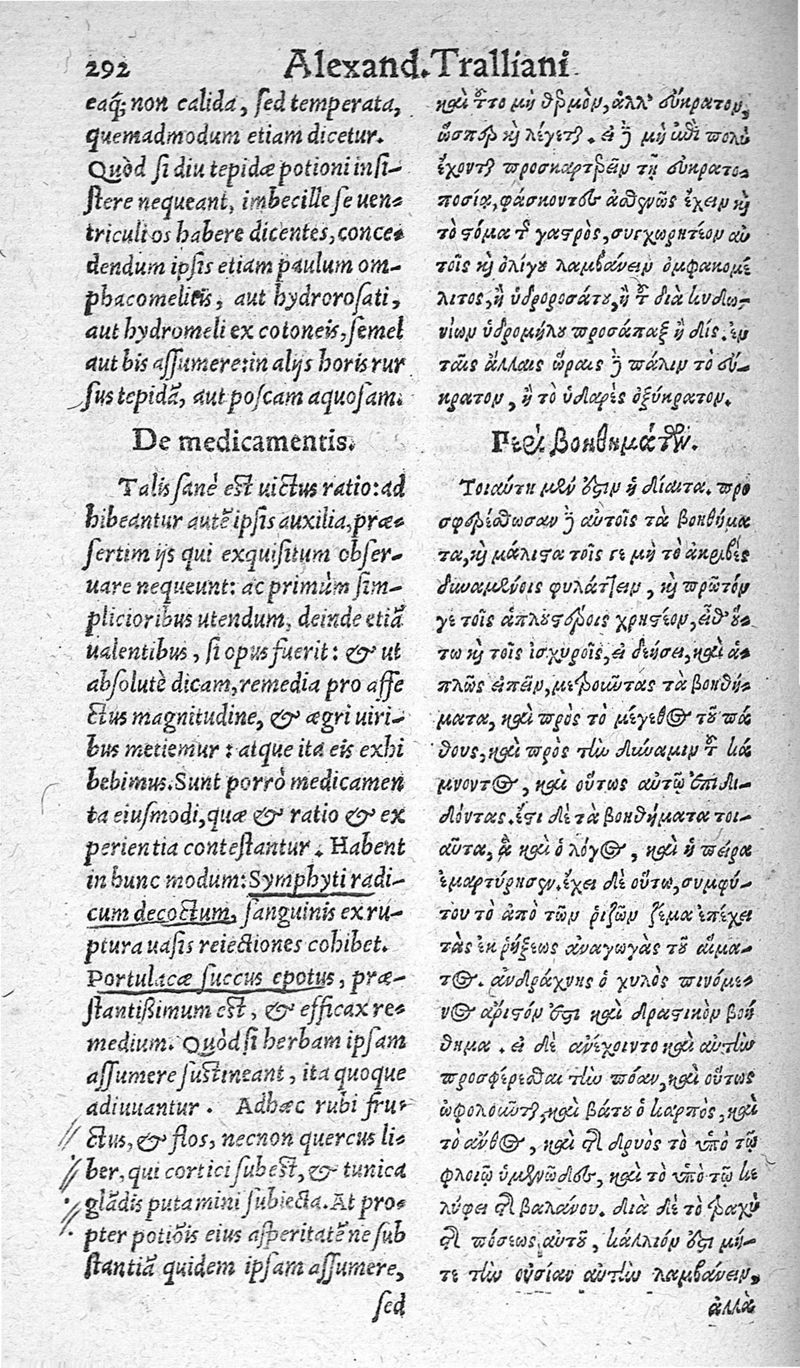 292 Alexand. Tralliani
eaq́; non calida, sed temperata,
quemadmodum etiam dicetur.
Quòd si diu tepidæ potioni insi-
stere nequeant, imbecille se uen-
triculi os habere dicentes, conce-
dendum ipsis etiam paulum om-
phacomelitis, aut hydrorosati,
aut hydromeli ex cotoneis, semel
aut bis assumere: in alijs horis rur
sus tepidã, aut poscam aquosam.
De medicamentis.
Talis sanè est uictus ratio: ad
hibeantur autẽ ipsis auxilia, præ-
sertim ijs qui exquisitum obser-
uare nequeunt: ac primùm sim-
plicioribus utendum, deinde etiã
ualentibus, si opus fuerit: & ut
absolutè dicam, remedia pro affe
ctus magnitudine, & ægri uiri-
bus metiemur: atque ita eis exhi
bebimus. Sunt porrò medicamen
ta eiusmodi, quæ & ratio & ex
perientia contestantur. Habent
in hunc modum: Symphyti radi-
cum decoctum, sanguinis ex ru-
ptura uasis reiectiones cohibet.
Portulacæ succus epotus, præ-
stantißimum est, & efficax re-
medium. Quòd si herbam ipsam
assumere sustineant, ita quoque
adiuuantur. Adhæc rubi fru-
ctus, & flos, necnon quercus li-
ber, qui cortici subest, & tunica
glãdis putamini subiecta. At pro-
pter potiõis eius asperitatẽ ne sub
stantiã quidem ipsam assumere,
sed
καὶ τ̃το μὴ θερμὸν, ἀλλ' εὔκρατον,
ὥσπερ κὴ λέγεται. εἰ δὲ μὴ ἐπὶ πολὺ
ἔχοντι προσκαρτερεῖν τῇ εὐκρατο-
ποσίᾳ, φάσκοντες ἀσθενῶς ἔχειν κὴ
τὸ στόμα τ̃ γαστρὸς, συγχωρητέον αὐ
τοῖς κὴ ὀλίγου λαμβάνειν ὀμφακομέ
λιτος, ἢ ὑδροροσάτου, ἢ τ̃ διὰ κυδω-
νίων ὑδρομήλου προσάπαξ ἢ δίς. ἐν
ταῖς ἄλλαις ὥραις δὲ πάλιν τὸ εὔ-
κρατον, ἢ τὸ ὑδαρὲς ὀξύκρατον.
Περὶ βοηθημάτων.
Τοιαύτη μὲν ἐστὶν ἡ δίαιτα. προ
σφερέσθωσαν δὲ αὐτοῖς τὰ βοηθήμα
τα, κὴ μάλιστα τοῖς γε μὴ τὸ ἀκριβὲς
δυναμένοις φυλάττειν, κὴ πρῶτόν
γε τοῖς ἁπλουστέροις χρηστέον, εἶθ' οὕ-
τω κὴ τοῖς ἰσχυροῖς, εἰ δεήσει, καὶ ἁ-
πλῶς εἰπεῖν, μετροῦντας τὰ βοηθή-
ματα, καὶ πρὸς τὸ μέγεθος τοῦ πά
θους, καὶ πρὸς τὴν δύναμιν τ̃ κά
μνοντος, καὶ οὕτως αὐτῷ ἐπιδι-
δόντας. ἔστι δὲ τὰ βοηθήματα τοι-
αῦτα, ἃ καὶ ὁ λόγος, καὶ ἡ πεῖρα
ἐμαρτύρησεν. ἔχει δὲ οὕτω, συμφύ-
του τὸ ἀπὸ τῶν ῥιζῶν ζέμα ἐπέχει
τὰς ἐκ ρήξεως ἀναγωγὰς τοῦ αἵμα-
τος. ἀνδράχνης ὁ χυλὸς πινόμε-
νος ἄριστόν ἐστι καὶ δραστικὸν βοή
θημα. εἰ δὲ ἀνέχοιντο καὶ αὐτὴν
προσφέρεσθαι τὴν πόαν, καὶ οὕτως
ὠφελοῦνται, καὶ βάτου ὁ καρπὸς, καὶ
τὸ ἄνθος, καὶ τῆς δρυὸς τὸ ὑπὸ τῷ
φλοιῷ ὑμενῶδες, καὶ τὸ ὑπὸ τῷ κε
λύφει τῆς βαλάνου. διὰ δὲ τὸ τραχὺ
τῆς πόσεως αὐτοῦ, κάλλιόν ἐστι μή-
τε τὴν οὐσίαν αὐτὴν λαμβάνειν,
ἀλλὰ